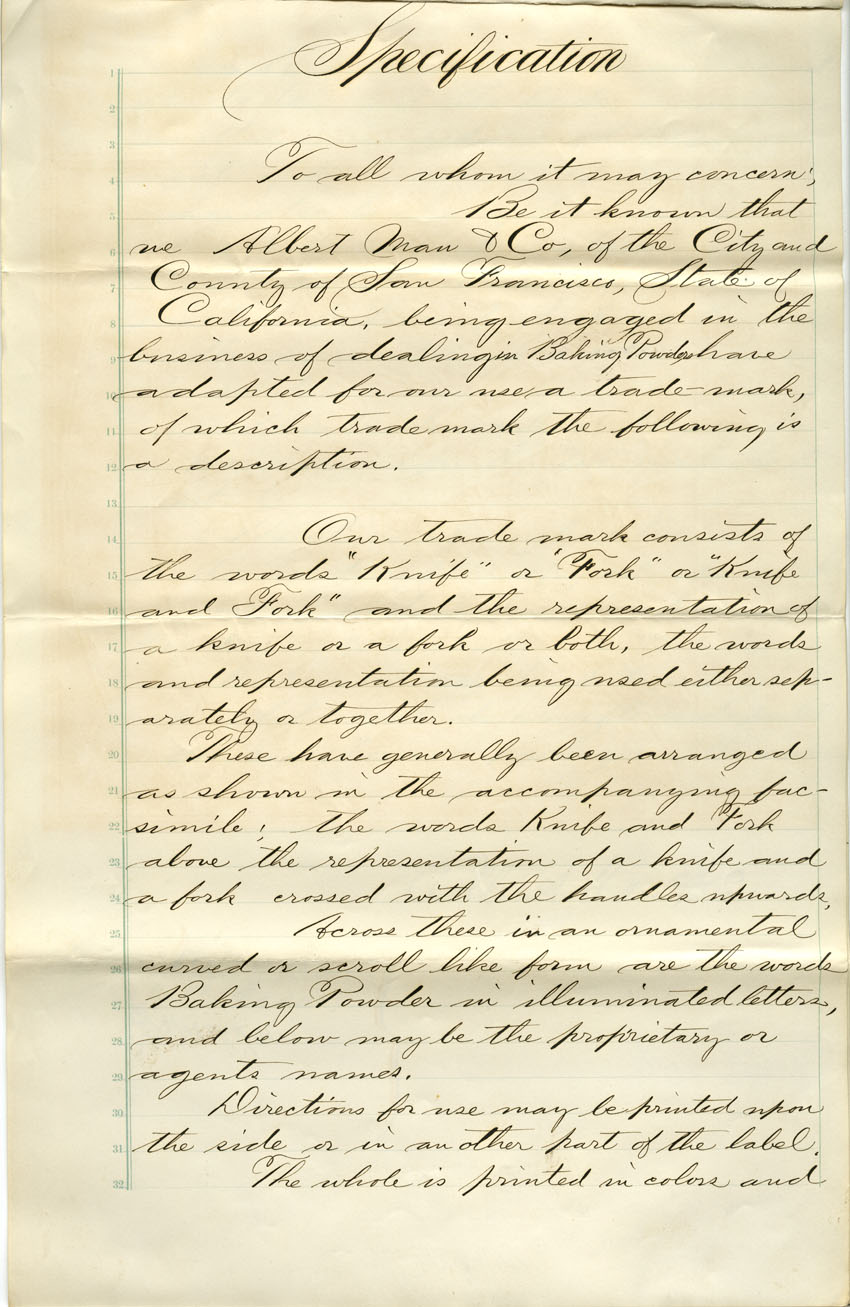 Specification
1
2
3
To all whom it may concern;
4
Be it known that
5
we Albert Mau & Co, of the City and
6
County of San Francisco, State of
7
California, being engaged in the
8
business of dealing in Baking Powder have
9
adapted for our use, a trade-mark,
10
of which trade mark the following is
11
a description.
12
13
Our trade mark consists of
14
the words "Knife" or "Fork" or "Knife
15
and Fork" and the representation of
16
a knife or a fork or both, the words
17
and representation being used either sep-
18
arately or together.
19
These have generally been arranged
20
as shown in the accompanying fac-
21
simile; the words Knife and Fork
22
above the representation of a knife and
23
a fork crossed with the handles upwards,
24
Across these in an ornamental
25
curved or scroll like form are the words
26
Baking Powder in illuminated letters,
27
and below may be the proprietary or
28
agents names.
29
Directions for use may be printed upon
30
the side or in another part of the label.
31
The whole is printed in colors and
32